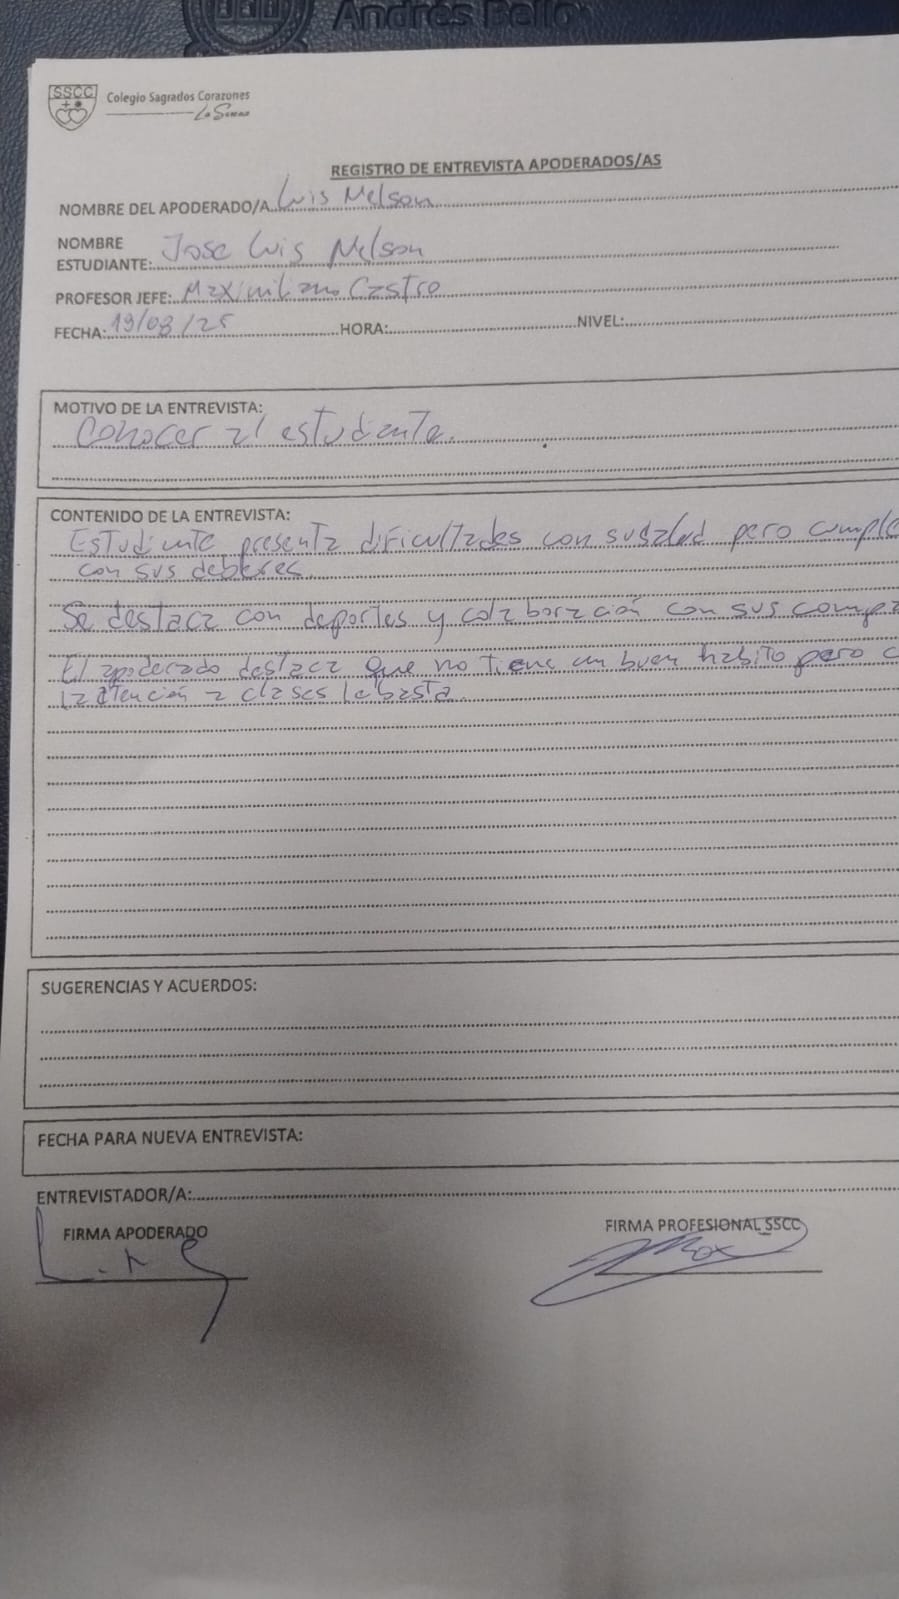 Andrés Bello
SSCC
Colegio Sagrados Corazones
La Serena
REGISTRO DE ENTREVISTA APODERADOS/AS
NOMBRE DEL APODERADO/A Luis Nelson
NOMBRE
ESTUDIANTE: Jose Luis Nelson
PROFESOR JEFE: Maximiliano Castro
FECHA: 19/08/25 HORA: NIVEL:
MOTIVO DE LA ENTREVISTA:
Conocer al estudiante.
CONTENIDO DE LA ENTREVISTA:
Estudiante presenta dificultades con su salud pero cumple
con sus deberes.
Se destaca con deportes y colaboración con sus compa
El apoderado destaca que no tiene un buen hábito pero c
la atención a clases le basta.
SUGERENCIAS Y ACUERDOS:
FECHA PARA NUEVA ENTREVISTA:
ENTREVISTADOR/A:
FIRMA APODERADO FIRMA PROFESIONAL SSCC